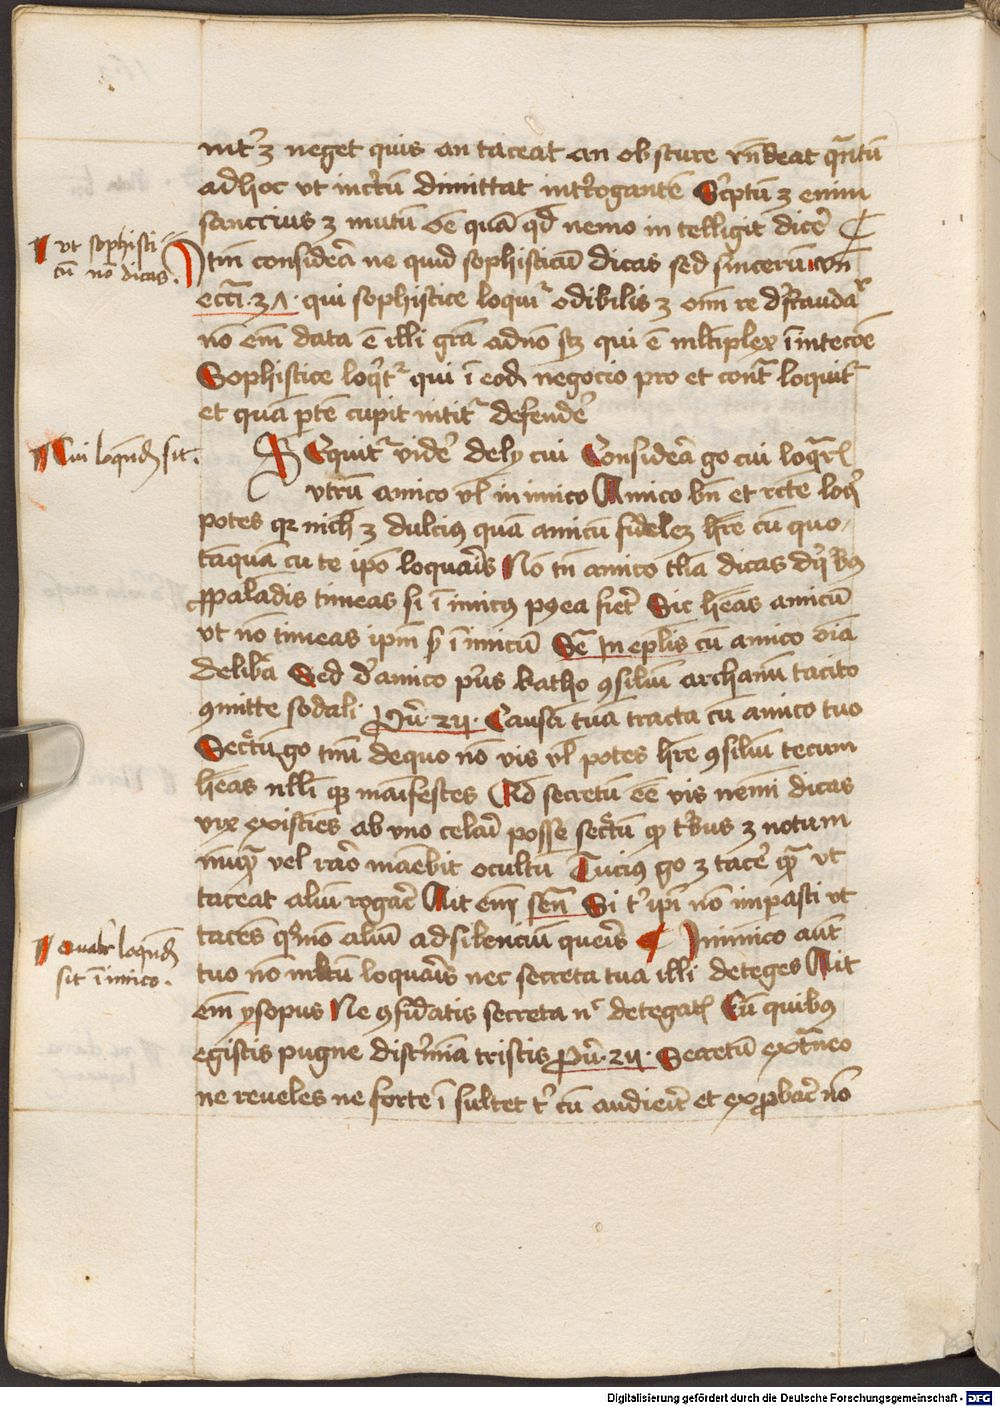 nitꝰꝫ neget quis an taceat an obscure rn̄deat qn̄tū
adhoc vt incꝰtū dimittat intꝰrogantē Scͥptū ꝫ enim
sanccius ꝫ mutū ēē quā qd̄ nemo in telligit dicꝰe
vt sophisti
cū nō dicas.
Itm̄ considerā ne quid sophisticū dicas sed sincerū vn̄
eccͣ. qui sophistice loquiͬ odibilis ꝫ om̄i re dꝰfraudaͬ
nō em̄ data ē illi grā adnō qui ē mltiplex ī
Sophistice loqͥtͬ qui ī eod̄ negocio pro et contͣ loquitͬ
et quā ptē cupit nititͬ defendꝰe
Cui loquēd̄ sit.
SEquitͬ vidꝰe de cui Considerā go cui loqͣrꝭ
vtrū amico vl̄ in imico Amico bn̄ et rcē loqͥ
potes qr nich ꝫ dulcius quā amicū fidelē hr̄e cū quo
tāquā cu te ipō loquaris Nō tn̄ amico tlia dicas
ꝓpaladis timeas si ī imicꝰ pꝰea fierꝫ Sic heas amicū
vt nō timeas ipm̄ ī imicū Seͣ In eplis cū amico oīa
delibā Sed dꝰ amico pꝰus katho ꝯsiliū archanū tacito
ꝯmitte sodali Pūͬ. 25. Causā tuā tracta cū amico tuo
Secͬtū go tm̄ dequo nō vis vl̄ potes hr̄e ꝯsiliū tecum
heas nlli qꝫ maīfestes Qd̄ secretū ēē vis nemī dicas
vix existiēs ab vno celari posse secͬtū qd̄ tribus ꝫ notum
nūqͣ vel raro maēbit ocultū Tucius go ꝫ tacꝰe qͣ vt
taceat aliū rogarꝰ Ait em̄ senͣ Si tͥ ipī nō imperasti vt
taceꝰs qͦmō aliū adsilenciū queris Inimico aūt
Qualr̄ loquēd̄
sit ī imico.
tuo nō mltū loquaris nec secreta tua illi deteges Ait
em̄ ysopus Ne ꝯfidatis secreta nͨ detegatꝭ Cū quibus
egistis pugne discͥmīa tristis Pūͬ. 25. Secretū extͣneo
ne reueles ne forte ī sultet tͥ cū audierꝭ et exprobacꝰ nō
Digitalisierung gefördert durch die Deutsche Forschungsgemeinschaft - DFG